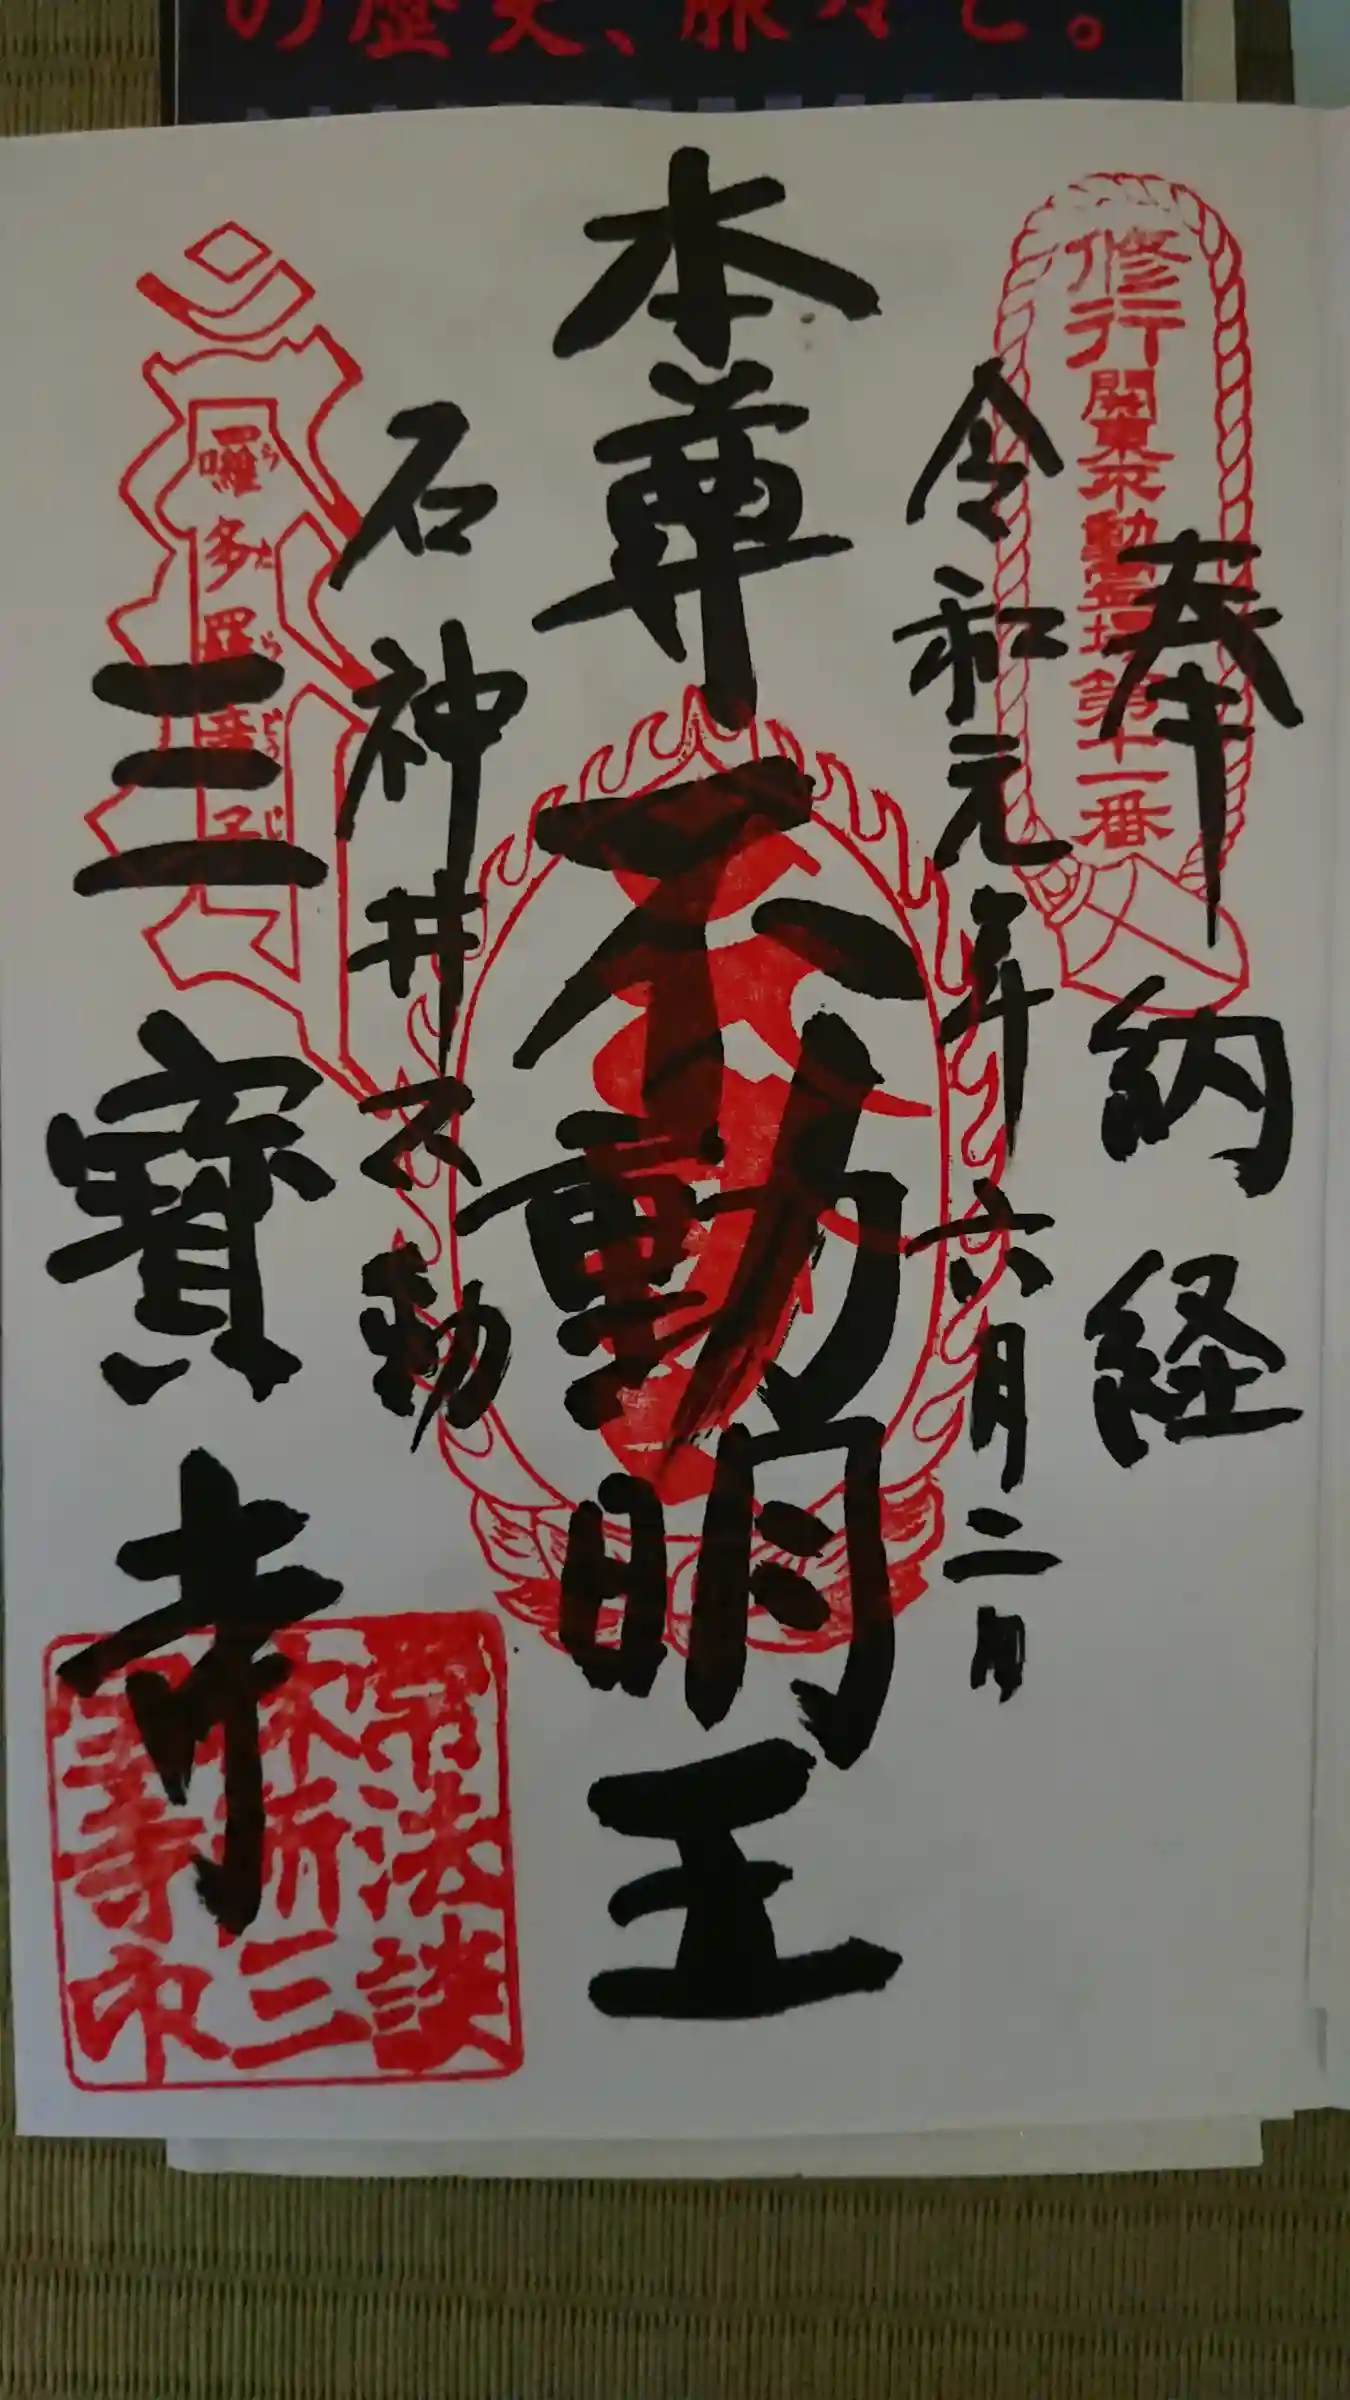 の歴史、脈々と。
修行 關東不動霊場第十一番
奉納経
令和元年六月二日
本尊不動明王
石神井不動
三寳寺
囉多羅童子
常法談
林所三
宝寺印